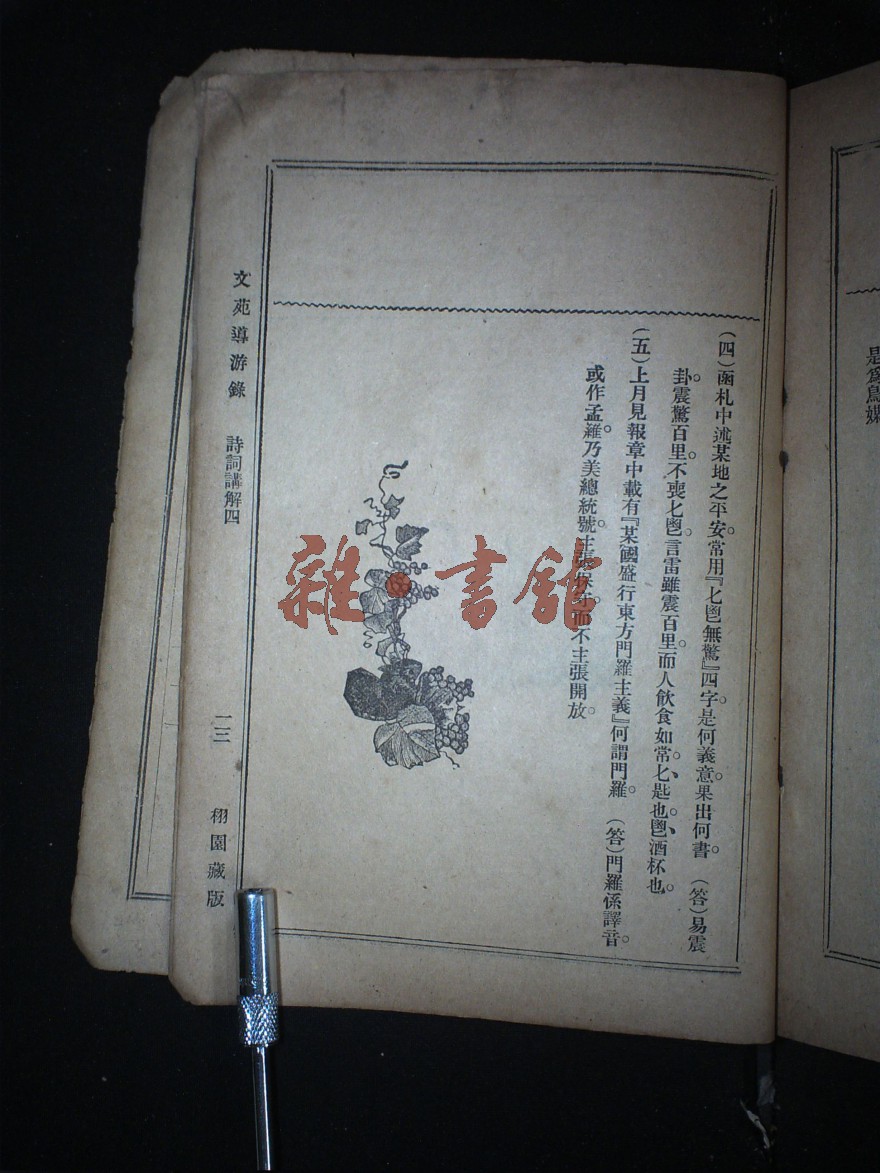 (四)函札中述某地之平安。常用『匕鬯無驚』四字。是何義意。果出何書。 (答)易震
卦。震驚百里。不喪匕鬯。言雷雖震百里。而人飲食如常。匕、匙也。鬯、酒杯也。
(五)上月見報章中載有『某國盛行東方門羅主義』何謂門羅。 (答)門羅係譯音。
或作孟羅。乃美總統號。主張保守。而不主張開放。
文苑導游錄 詩詞講解四 二三 栩園藏版
是爲鳥媒
雜·書館